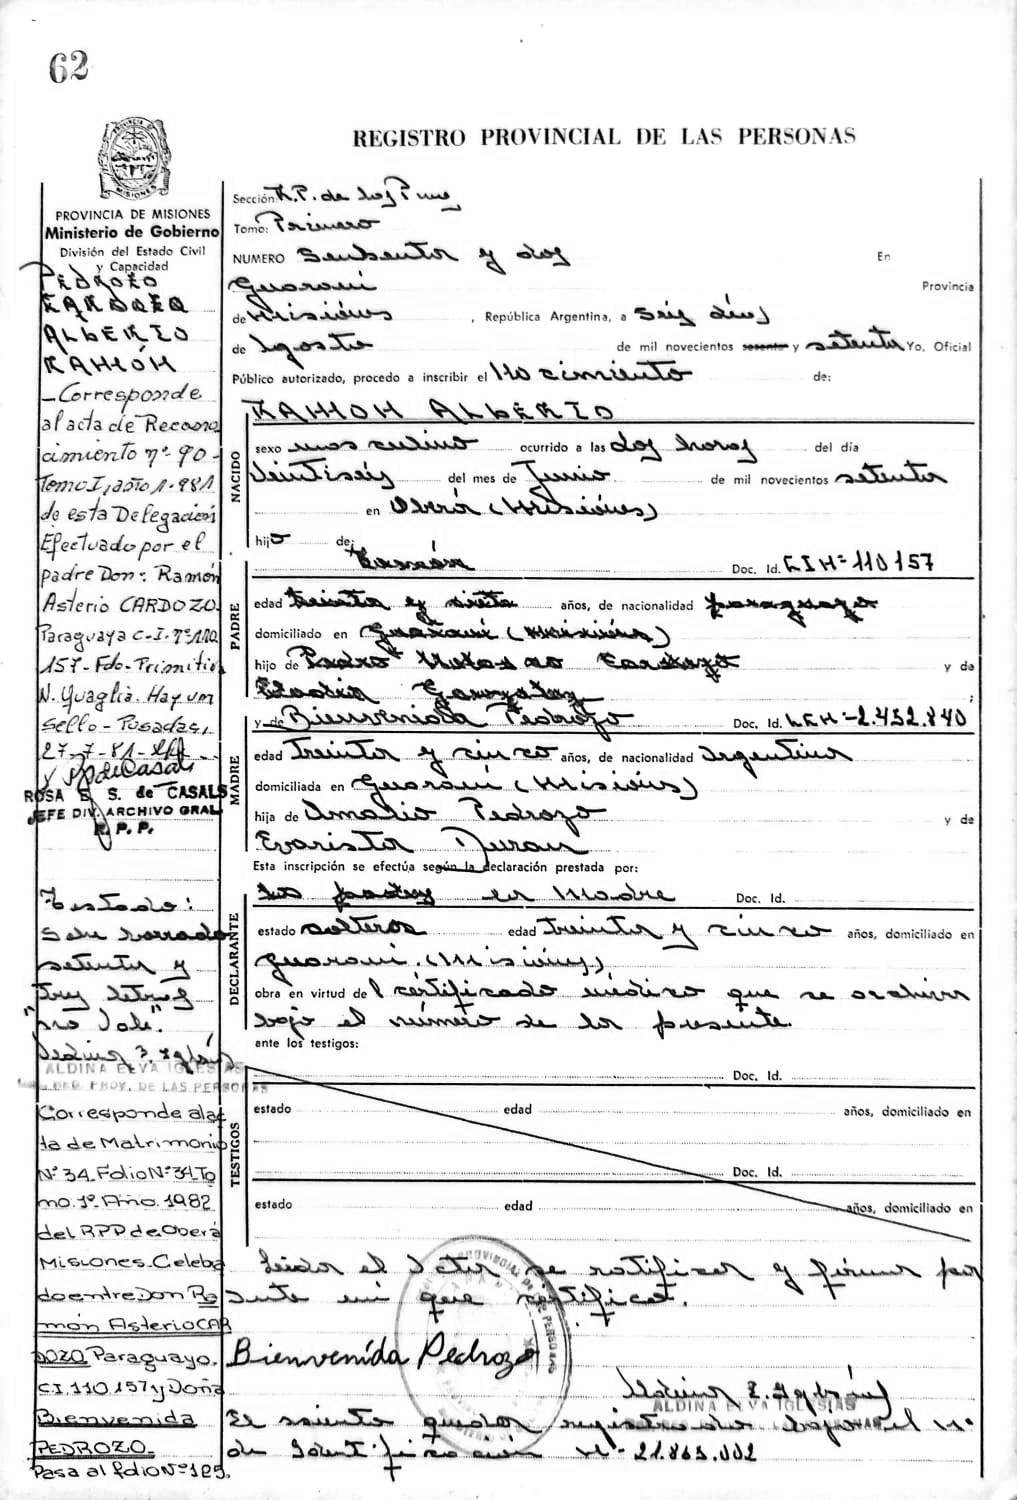 62
REGISTRO PROVINCIAL DE LAS PERSONAS
PROVINCIA DE MISIONES
Ministerio de Gobierno
División del Estado Civil
y Capacidad
PEDROZO
CARDOZO
ALBERTO
RAMÓN
- Corresponde
al acta de Recono
cimiento nº 90 -
Tomo I, año 1.981
de esta Delegación
Efectuado por el
padre Don: Ramón
Asterio CARDOZO.
Paraguaya C-I. nº 110.
157 - Fdo - Primitiva
N. Quaglia. Hay un
sello - Posadas,
27-7-81-
ROSA E. S. de CASALS
JEFE DIV. ARCHIVO GRAL
R. P. P.
Testado:
Sobre borrado
setenta y
tres letras
"no Vale".
ALDINA ELVA IGLESIAS
REG PROV. DE LAS PERSONAS
Corresponde alac
ta de Matrimonio
Nº 34. Folio Nº 34 To
mo. 1º. Año. 1982
del RPP de Oberá
Misiones. Celebra
do entre Don Ra
món Asterio CAR
DOZO Paraguayo.
C.I. 110.157 y Doña
Bienvenida
PEDROZO.
Pasa al folio Nº 129.
Sección: R.P. de las P
Tomo: Primero
NUMERO Sesenta y dos En
Guaraní Provincia
de Misiones, República Argentina, a Seis días
de Agosto de mil novecientos sesenta y setenta Yo, Oficial
Público autorizado, procedo a inscribir el Nacimiento de:
NACIDO
RAMON ALBERTO
sexo masculino ocurrido a las dos horas del día
Veintiseis del mes de Junio de mil novecientos setenta
en Oberá (Misiones)
hijo de:
PADRE
Ramón Doc. Id. CIH=110157
edad treinta y siete años, de nacionalidad paraguayo
domiciliado en Guaraní (Misiones)
hijo de Pedro Cardozo y de
Gonzalez ;
MADRE
y de Bienvenida Pedrozo Doc. Id. LCH=2.452.840
edad treinta y cinco años, de nacionalidad Argentina
domiciliada en Guaraní (Misiones)
hija de Amalio Pedrozo y de
Evarista Duran
Esta inscripción se efectúa según la declaración prestada por:
DECLARANTE
los padres la Madre Doc. Id.
estado solteros edad treinta y cinco años, domiciliado en
Guaraní. (Misiones)
obra en virtud del certificado médico que se archiva
bajo el número de la presente.
ante los testigos:
TESTIGOS
Doc. Id.
estado edad años, domiciliado en
Doc. Id.
estado edad años, domiciliado en
Leida el Acta, se ratifica y firma por
ante mí que certifica.
Bienvenida Pedrozo
ALDINA ELVA IGLESIAS
El asiento queda registrado bajo el nº
de Identificación Nº 21.863.002